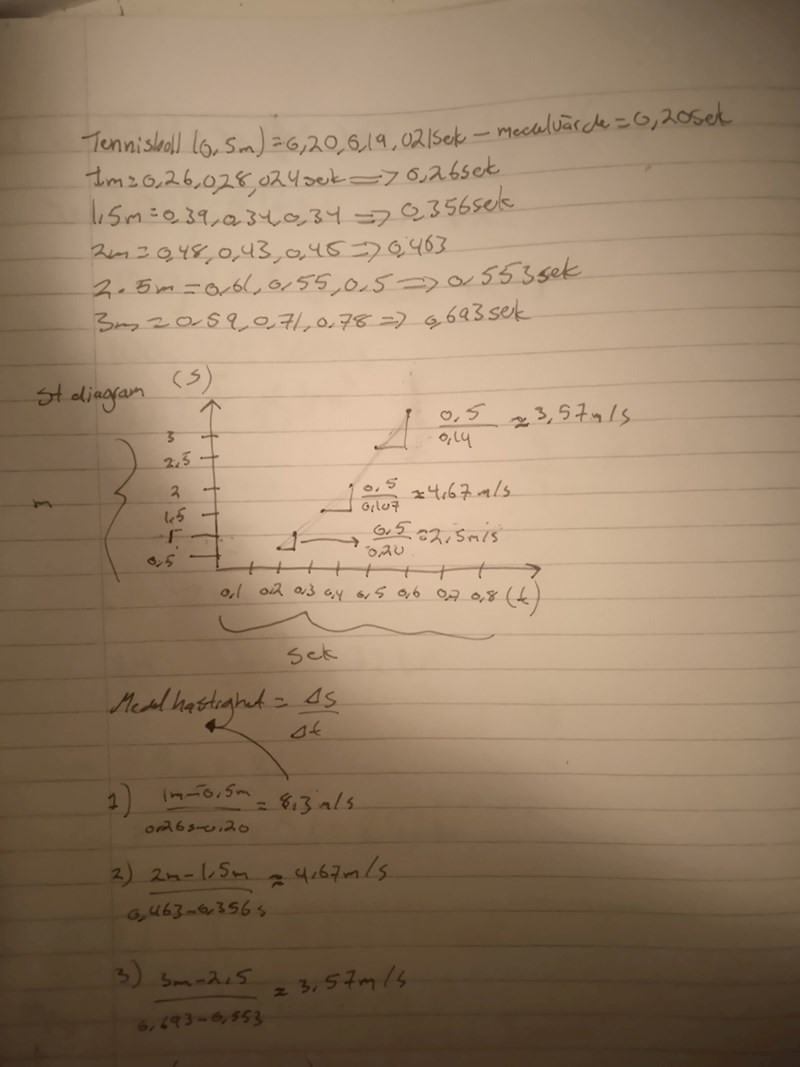 Tennisboll (0,5m) = 0,20, 0,19, 021sek – medelvärde = 0,20sek
1m = 0,26, 0,28, 024 sek => 0,26sek
1,5m = 0,39, 0,34, 0,34 => 0,356sek
2m = 0,48, 0,43, 0,45 => 0,463
2.5m = 0,61, 0,55, 0,5 => 0,553sek
3m = 0,59, 0,71, 0,78 => 0,693sek
St diagram (s)
3
2,5
2
1,5
1
0,5
m
0,5/0,14 ≈ 3,57m/s
0,5/0,107 ≈ 4,67 m/s
0,5/0,20 = 2,5m/s
0,1 0,2 0,3 0,4 0,5 0,6 0,7 0,8 (t)
Sek
Medelhastighet = Δs/Δt
1) 1m-0,5m / 0,26s-0,20 = 8,3 m/s
2) 2m-1,5m / 0,463-0,356s ≈ 4,67m/s
3) 3m-2,5 / 0,693-0,553 ≈ 3,57m/s